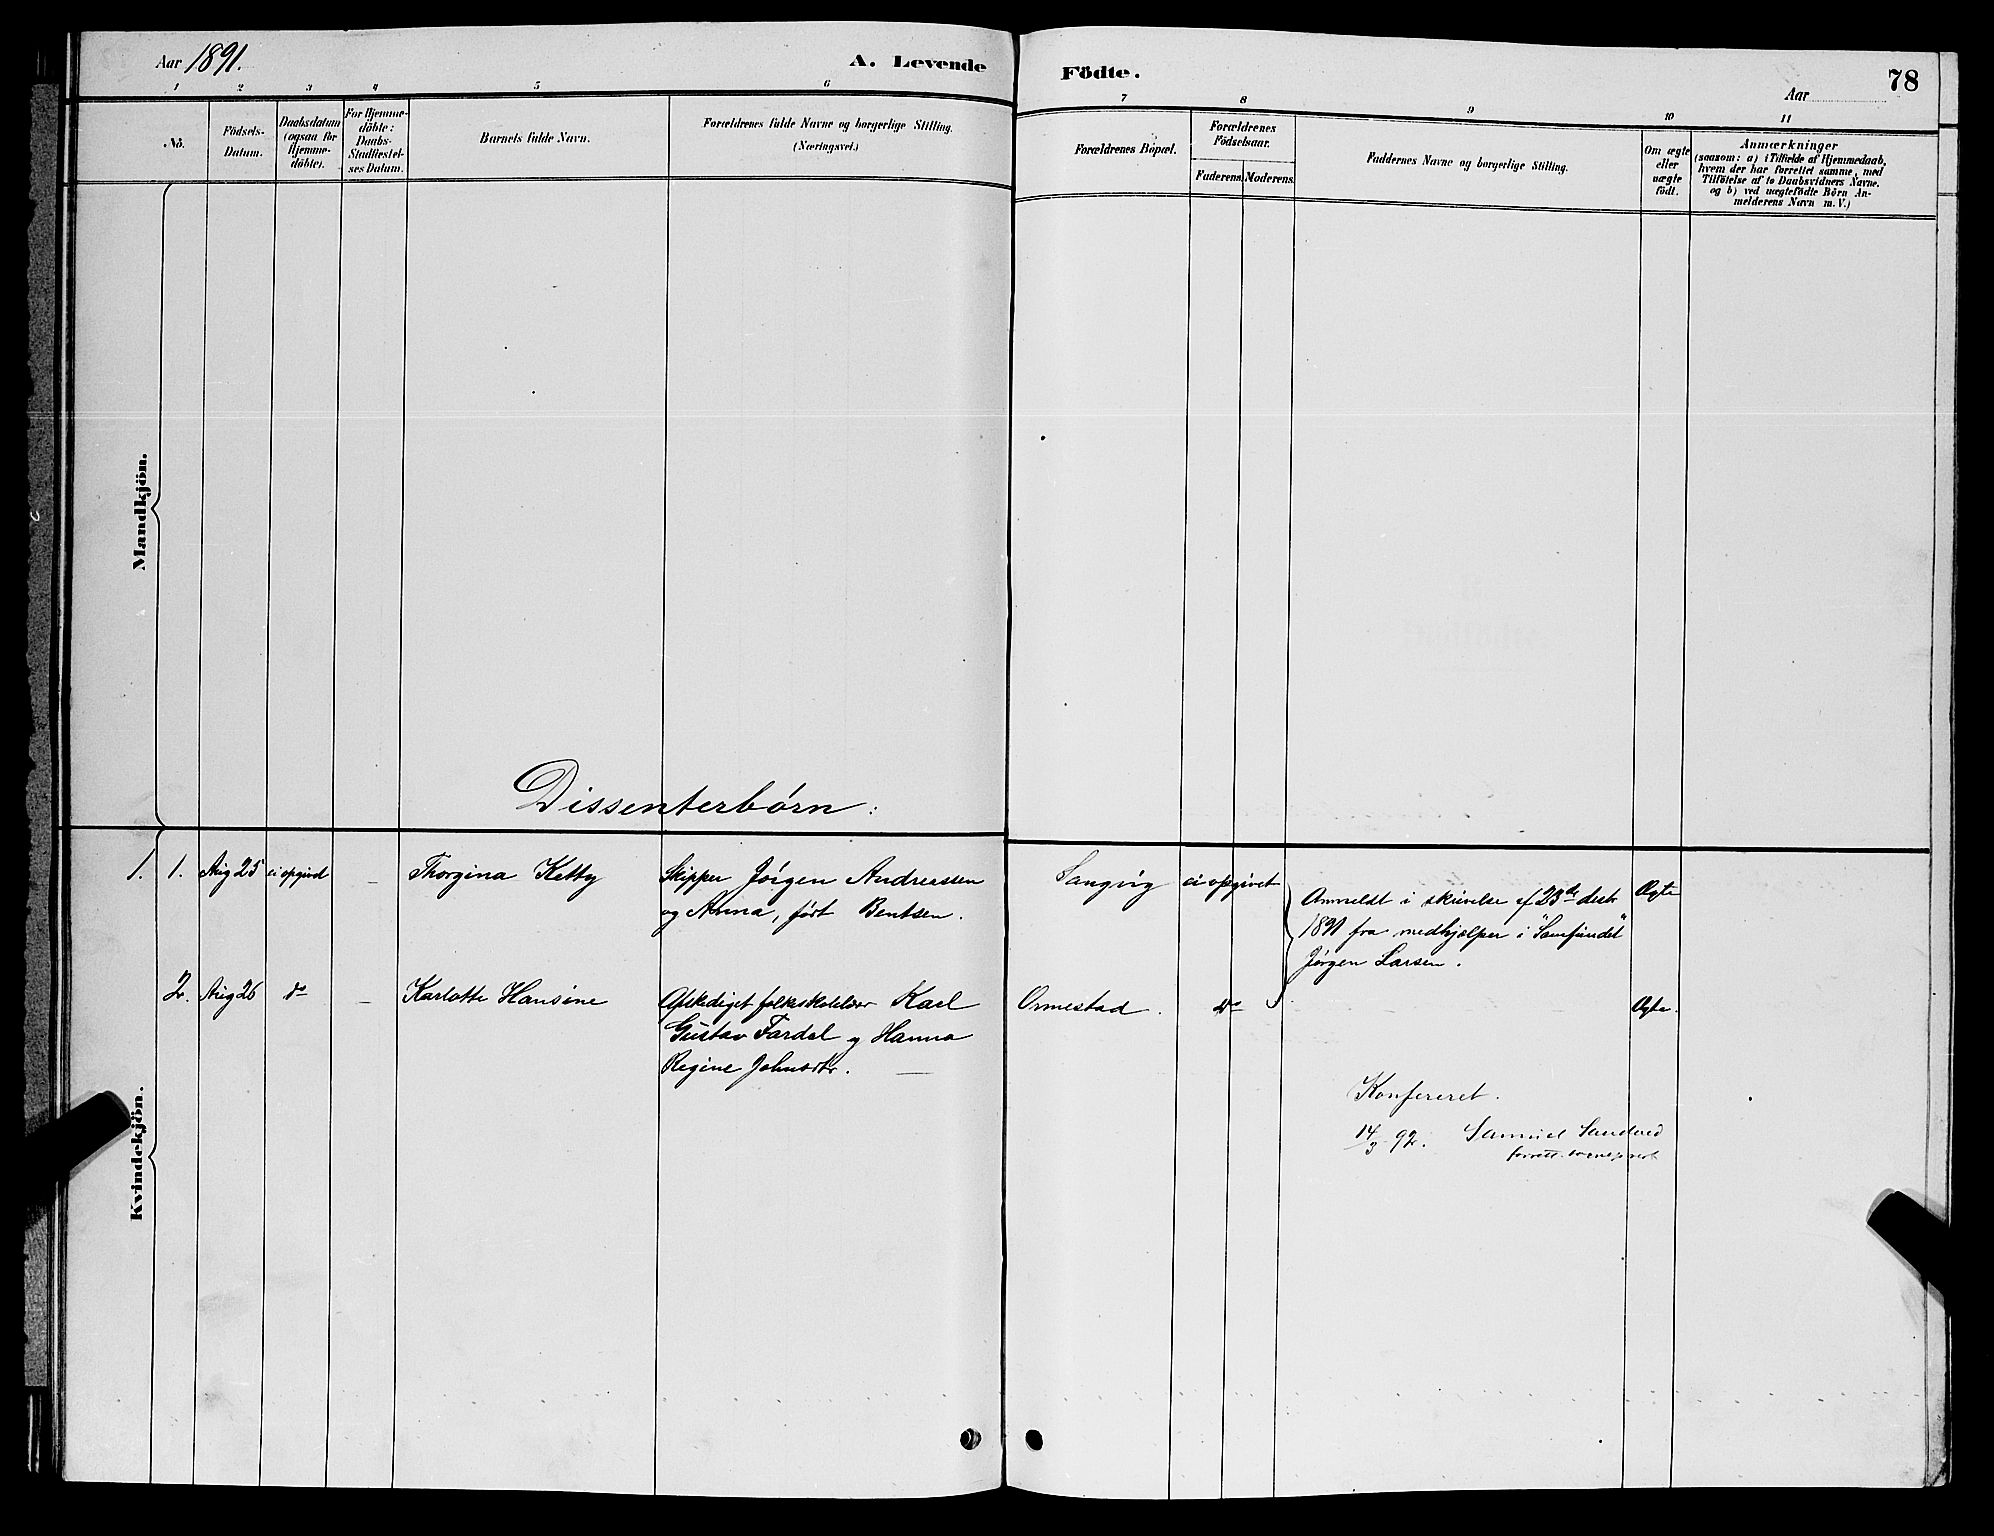 Aar 1891.
A. Levende
Födte.
78
Aar
1 2 3 4 5 6
7 8 9 10 11
No.
Födsels-
Datum.
Daabsdatum
(ogsaa for
Hjemme-
döbte).
For Hjemme-
döbte:
Daabs-
Stadfæstel-
ses Datum.
Barnets fulde Navn.
Forældrenes fulde Navne og borgerlige Stilling.
(Næringsvei.)
Forældrenes Bopæl.
Forældrenes
Födselsaar.
Faderens.
Moderens.
Faddernes Navne og borgerlige Stilling.
Om ægte
eller
uægte
födt.
Anmærkninger
(saasom: a) i Tilfælde af Hjemmedaab,
hvem der har forrettet samme, med
Tilföielse af to Daabsvidners Navne.
og b) ved uægtefödte Börn An-
melderens Navn m. V.)
Mandkjön.
Dissenterbörn:
Kvindekjön.
1. 1. Aug 25 ei opgivet – Thorgina Ketty Skipper Jörgen Andreassen
og Anna, født Bentsen.
Sangvig ei opgivet
Anmeldt i skrivelse af 23de decbr
1891 fra medhjælper i "Samfundet"
Jørgen Larsen.
Ægte
2. Aug 26 do – Karlotte Hansine Afskediget folkeskolelærer Karl
Gustav Fardal og Hanna
Regine Johnsdtr. –
Ormestad. do
Ægte.
Konfereret.
14/3 92. Samuel Sandved